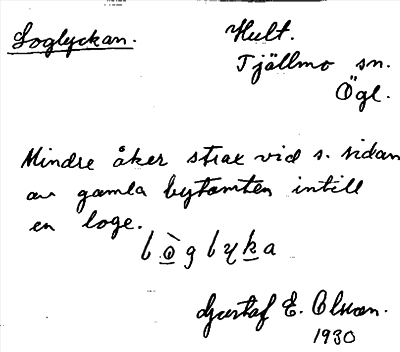 Loglyckan.
Hult.
Tjällmo sn.
Ögl.
Mindre åker strax vid s. sidan
av gamla bytomten intill
en loge.
lòglyka
Gustaf E. Olson.
1930